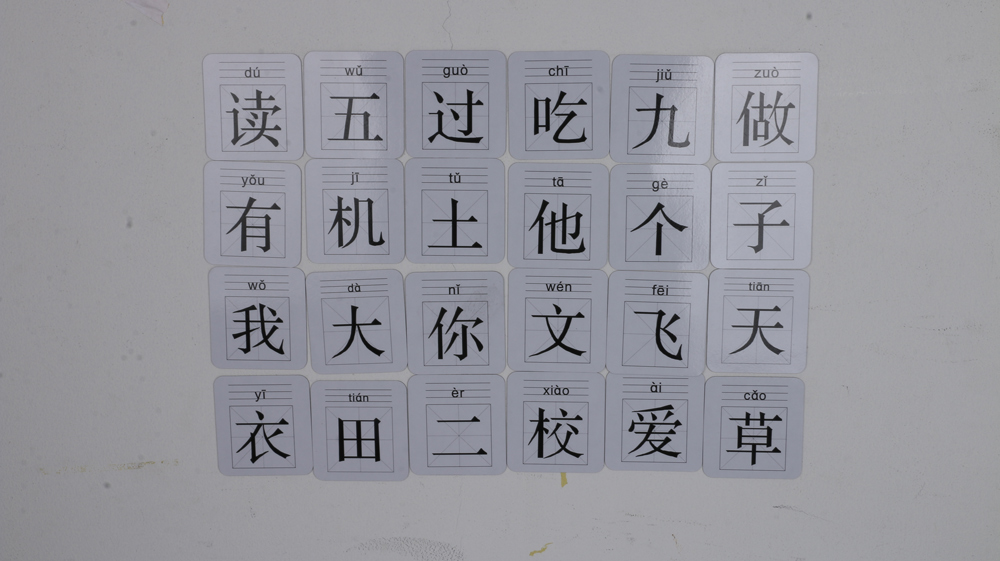 dú wǔ guò chī jiǔ zuò
读 五 过 吃 九 做
yǒu jī tǔ tā gè zǐ
有 机 土 他 个 子
wǒ dà nǐ wén fēi tiān
我 大 你 文 飞 天
yī tián èr xiào ài cǎo
衣 田 二 校 爱 草